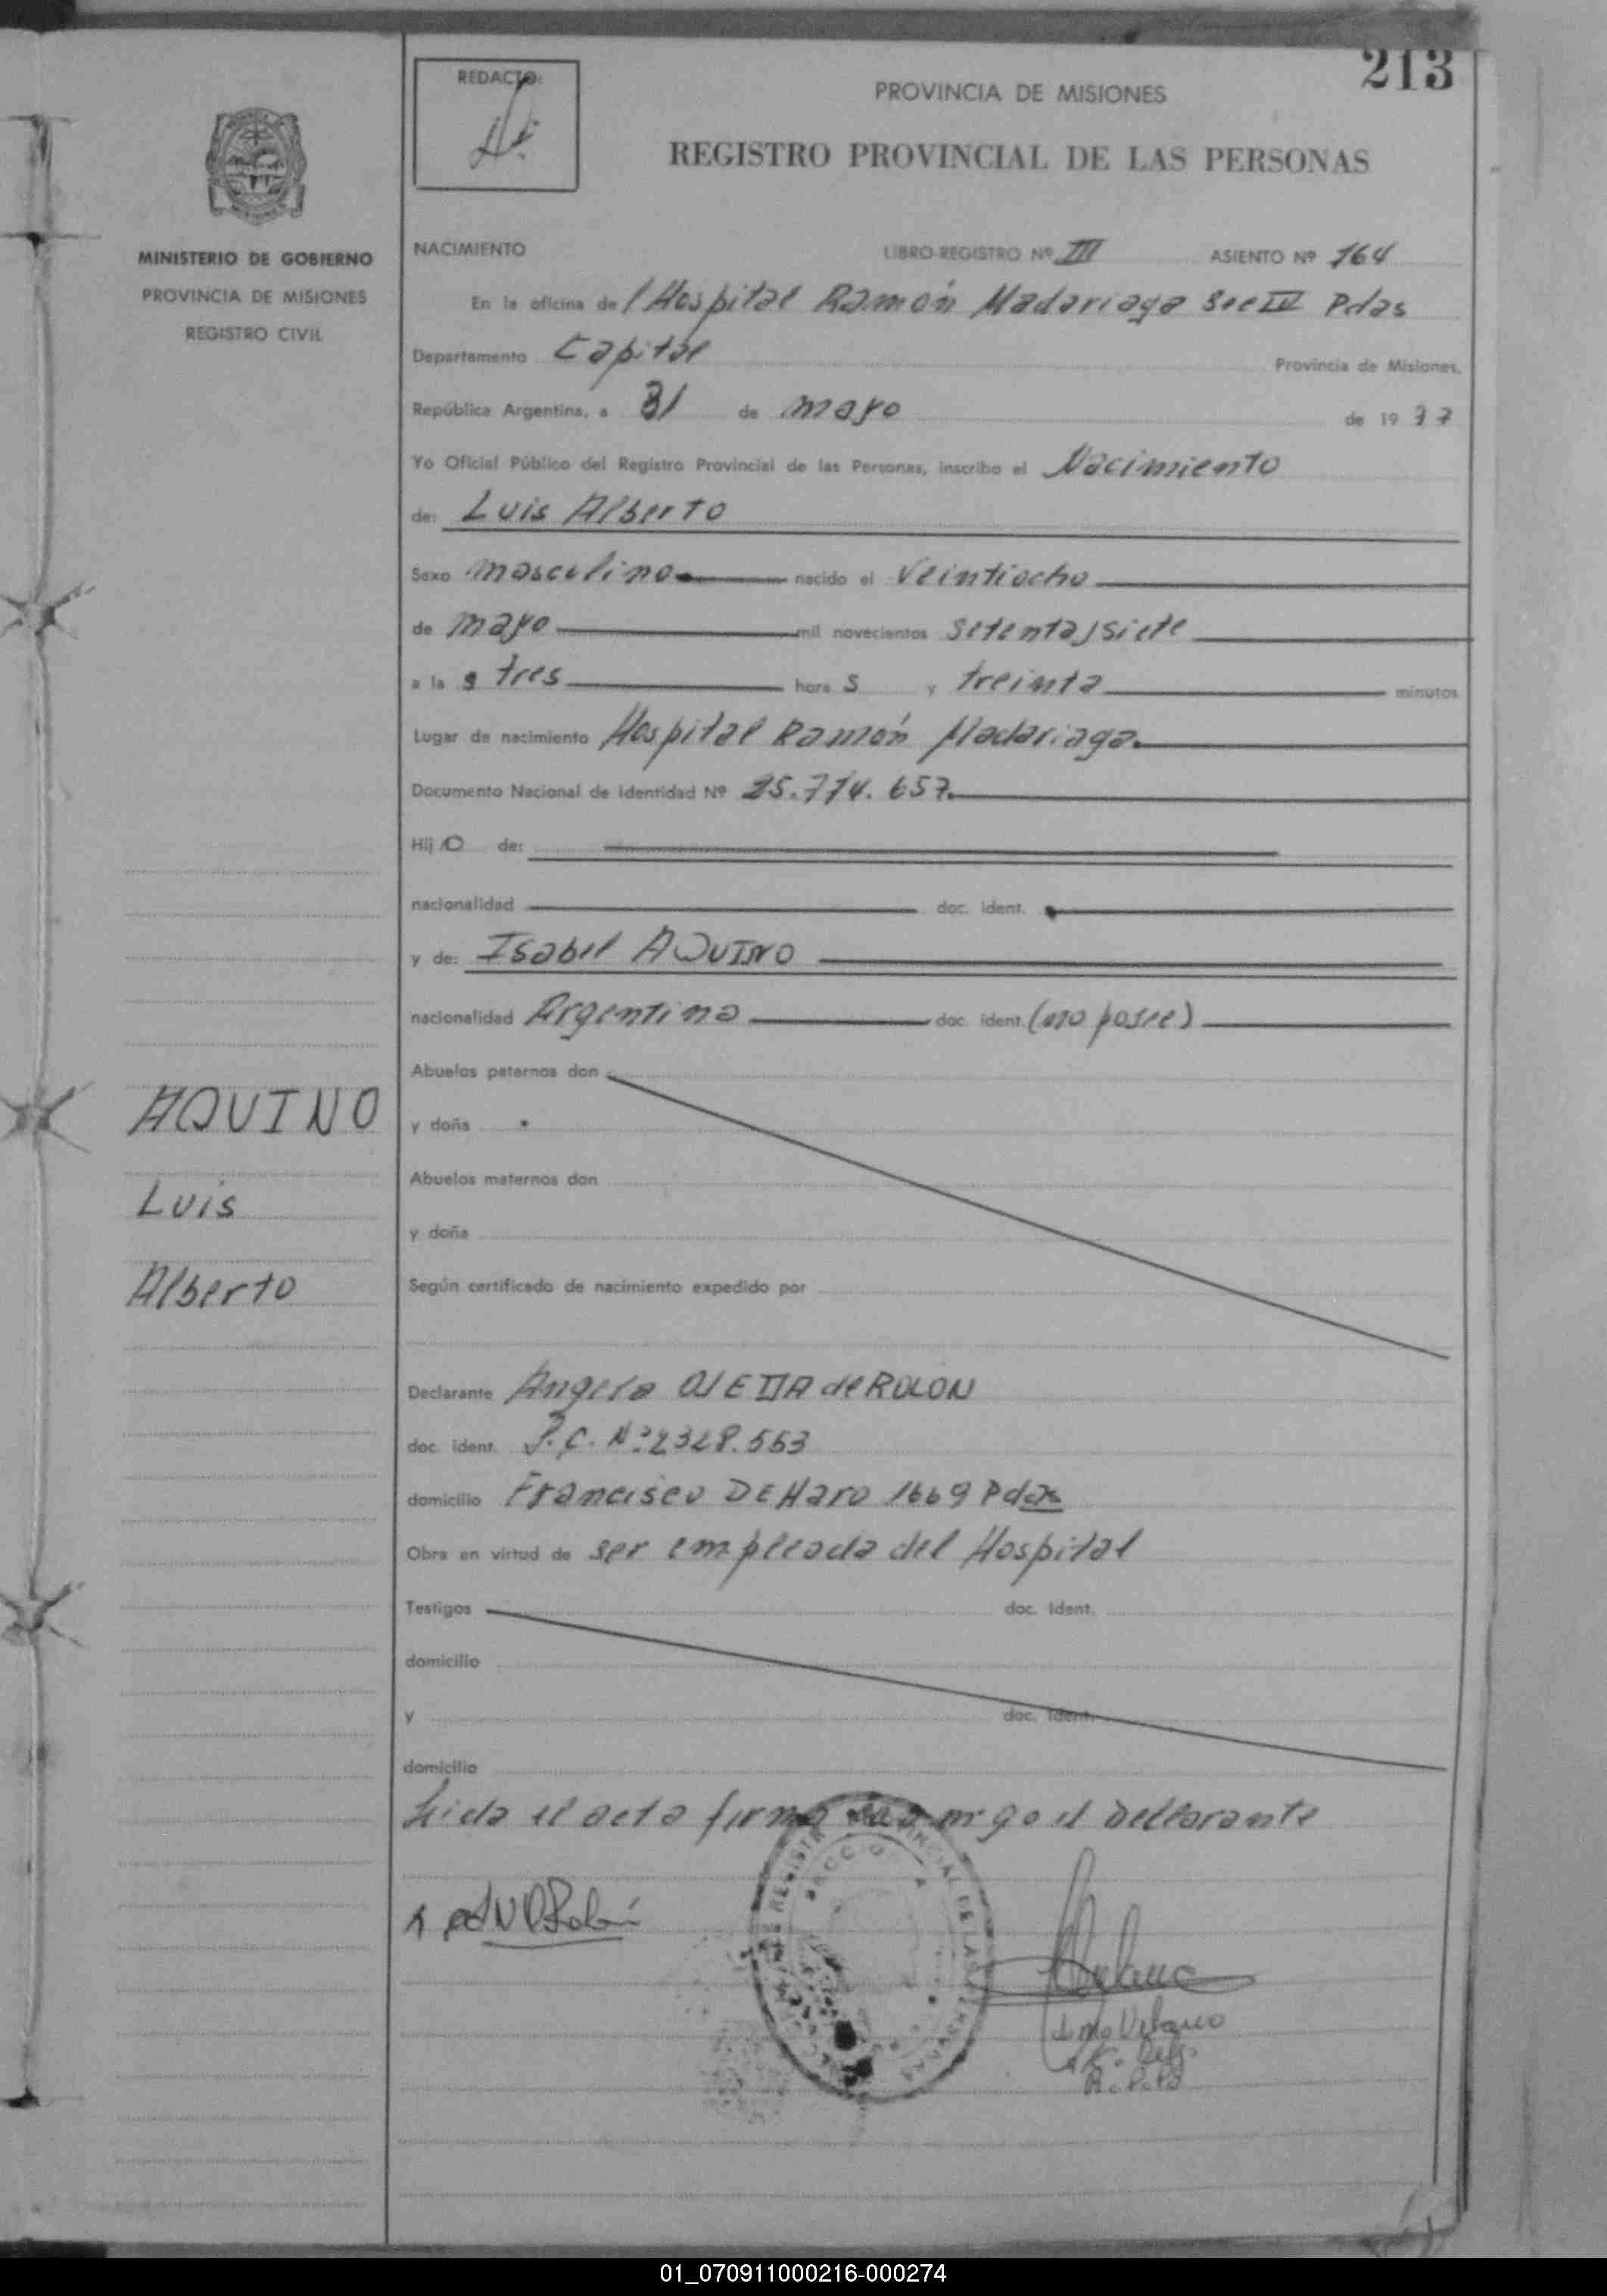 213
REDACTO:
PROVINCIA DE MISIONES
REGISTRO PROVINCIAL DE LAS PERSONAS
MINISTERIO DE GOBIERNO
PROVINCIA DE MISIONES
REGISTRO CIVIL
NACIMIENTO LIBRO-REGISTRO Nº III ASIENTO Nº 164
En la oficina de l Hospital Ramón Madariaga Sec IV Pdas
Departamento Capital Provincia de Misiones,
República Argentina, a 31 de mayo de 1977
Yo Oficial Público del Registro Provincial de las Personas, inscribo el Nacimiento
de: Luis Alberto
Sexo masculino nacido el Veintiocho
de mayo mil novecientos setentaysiete
a la s tres hora s y treinta minutos
Lugar de nacimiento Hospital Ramón Madariaga.
Documento Nacional de Identidad Nº 25.774.657.
Hij o de:
nacionalidad doc. ident.
y de: Isabel AQUINO
nacionalidad Argentina doc. ident. (no posee)
Abuelos paternos don
y doña
Abuelos maternos don
y doña
Según certificado de nacimiento expedido por
AQUINO
Luis
Alberto
Declarante Angela OJEDA de ROLON
doc. ident. Nº 2328.553
domicilio Francisco DE Haro 1669 Pdas
Obra en virtud de ser empleada del Hospital
Testigos doc. ident.
domicilio
y doc. ident.
domicilio
Leida el acta firma conmigo el declarante
REGISTRO PROVINCIAL DE LAS PERSONAS
01_070911000216-000274